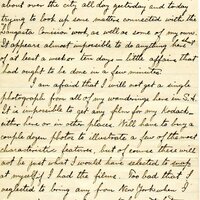 about over the city all day yesterday and today
trying to look up some matters connected with the
Tangasta Concession work, as well as some of my own.
It appears almost impossible to do anything here
of at least a week or ten days — little affairs that
had ought to be done in a few minutes.
I am afraid that I will not get a single
photograph from all of my wanderings here in S.A.
It is impossible to get any film for my kodak
either here or in other places. Will have to buy a
couple dozen photos to illustrate a few of the most
characteristic features, but of course these will
not be just what I would have selected to snap
at myself if I had the films. Too bad that I
neglected to bring any from New York when I